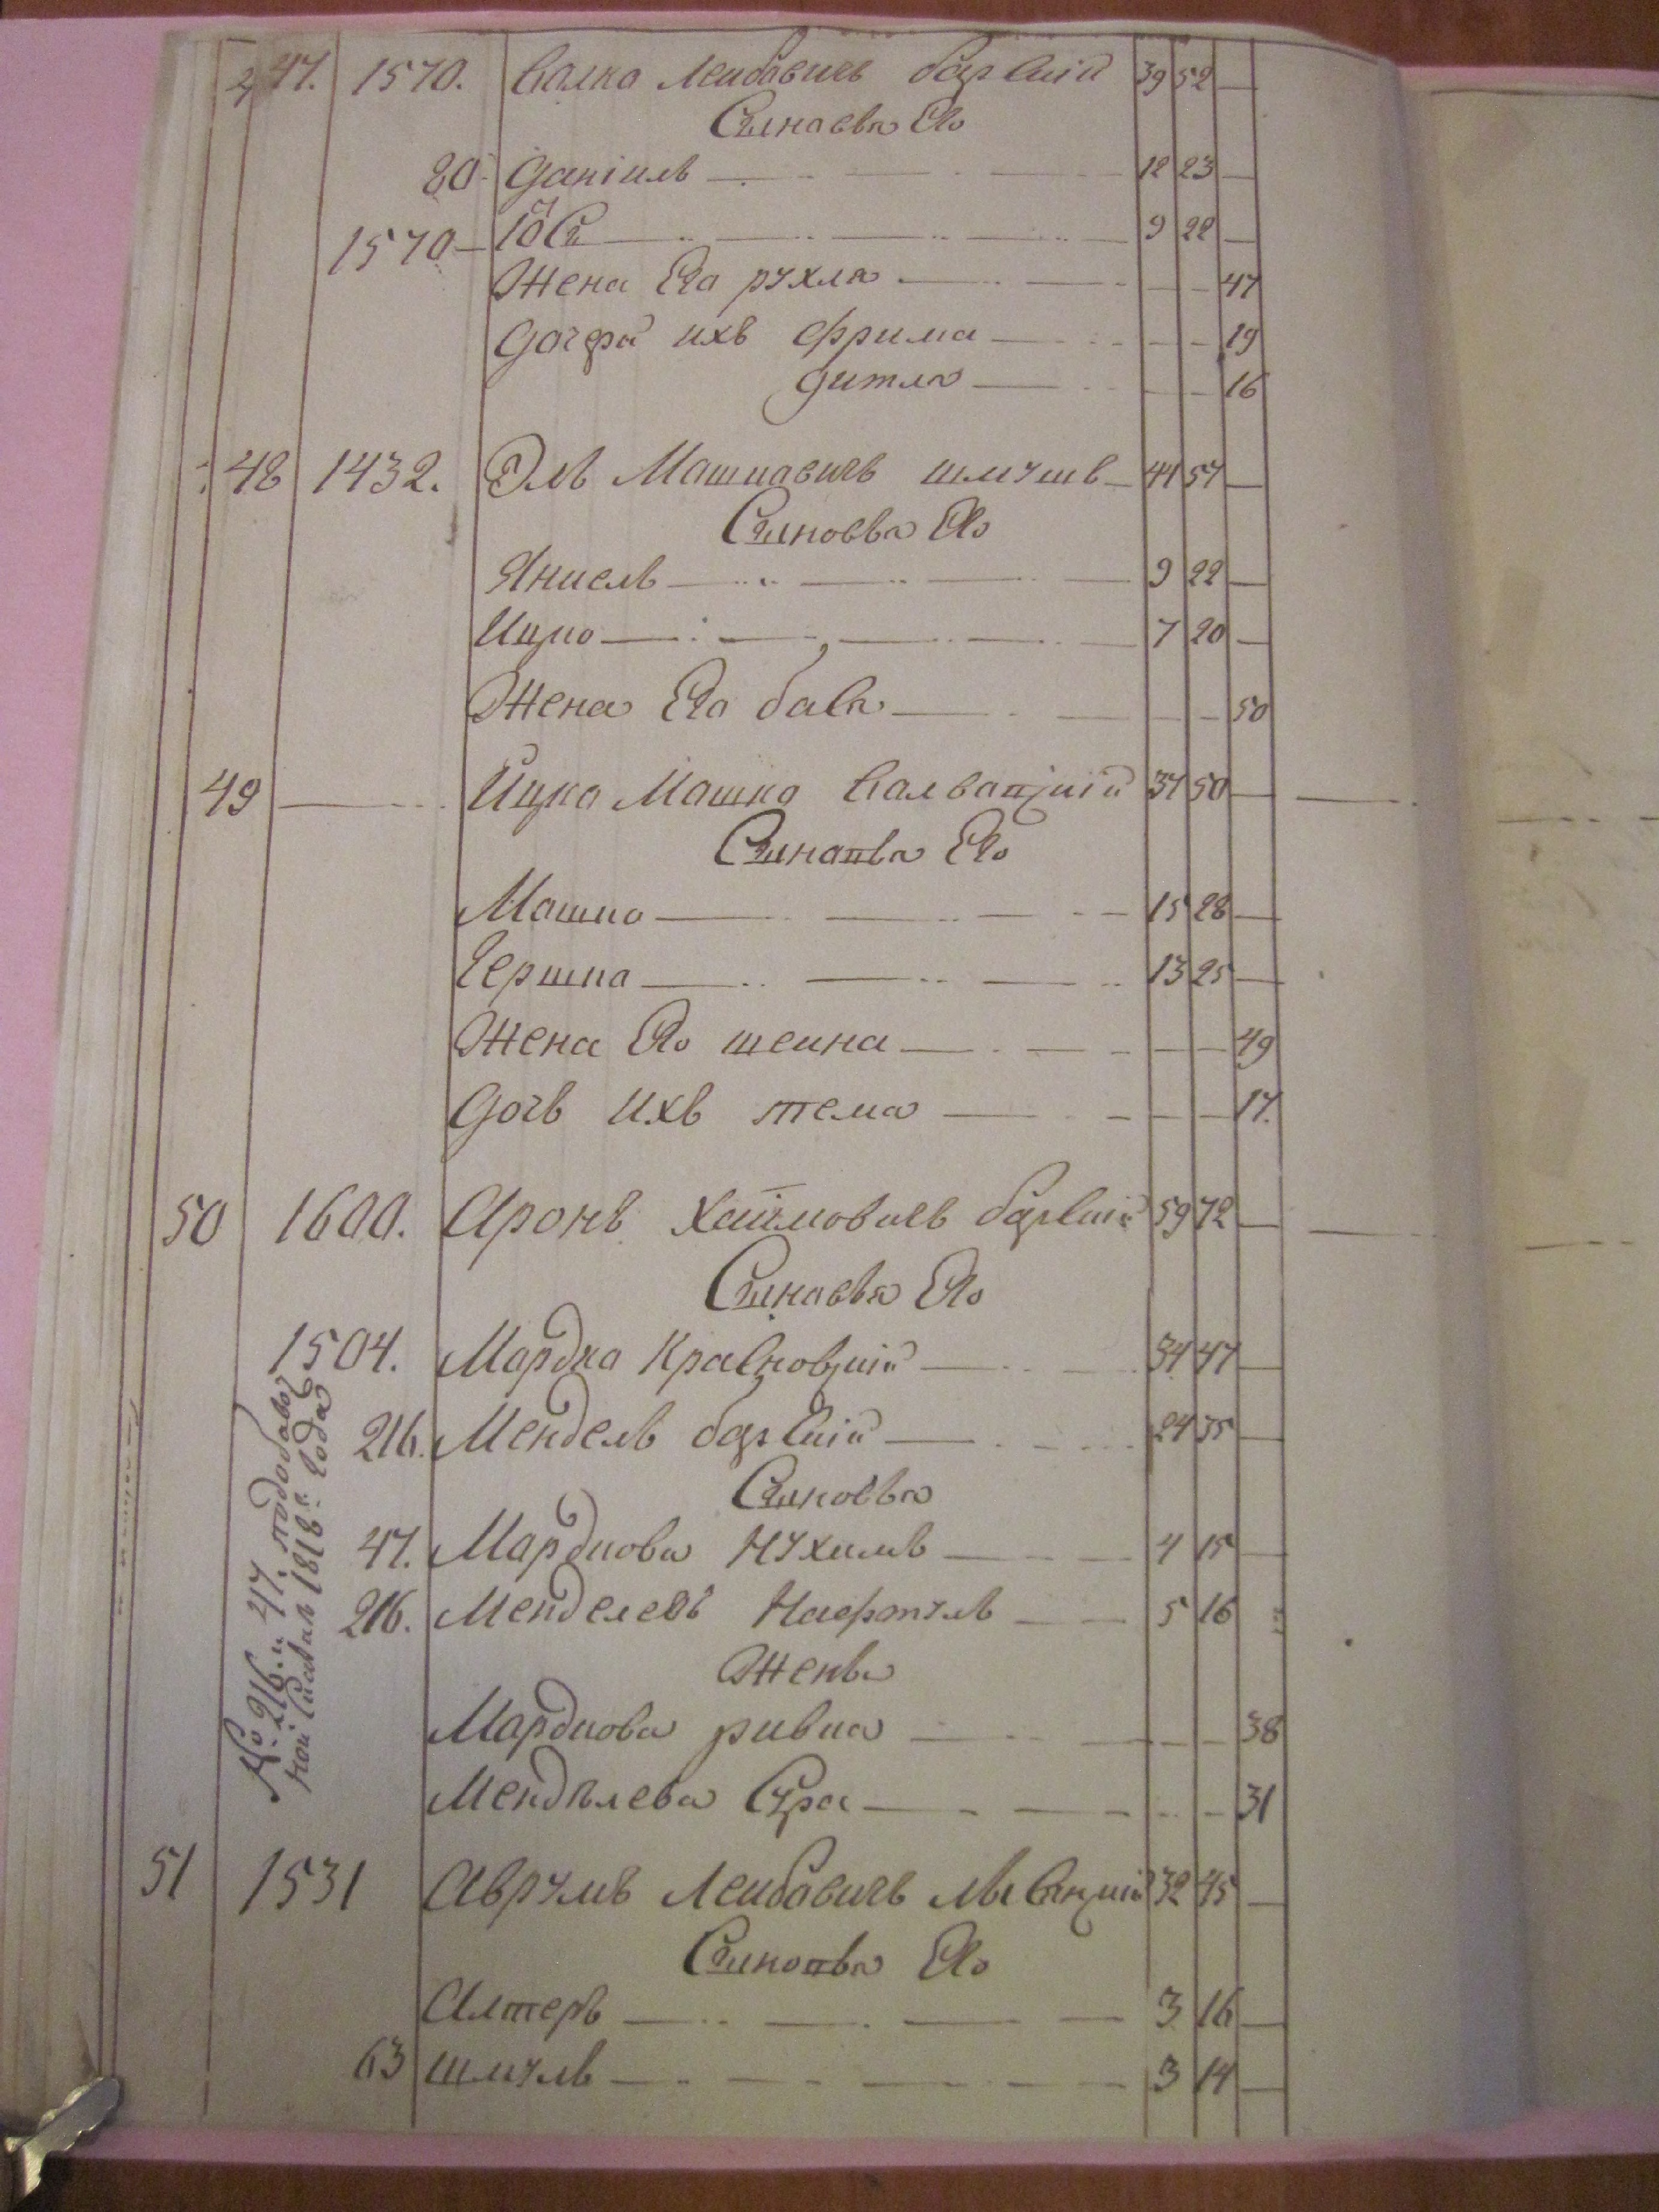 47. 1570. Волко Лейбовичъ 39 52 —
Сыновья Его
20 Даніиль 12 23 —
1570 — 9 22 —
Жена Его рухля — — 47
Дочери ихъ Фрима — — 19
Дитля — — 16
48 1432. Эль Мошковичъ шмушъ 44 57 —
Сыновья Его
Янкель 9 22 —
Ицко 7 20 —
Жена Его бася — — 50
49 — Ицко Мошко 37 50 —
Сыновья Его
Мошко 15 28 —
Гершко 13 25 —
Жена Его шейна — — 49
Дочь ихъ тема — — 17.
50 1600. Аронъ Хаймовичъ 59 72 —
Сыновья Его
1504. Мордко Красновскій 34 47 —
216. Мендель 24 35 —
Сыновья
47. Мордкова Нухимъ 4 15 —
216. Менделевъ Нафтуль 5 16
Жены
Мордкова ривка — — 38
Менделева Сура — — 31
№ 216. и 217. по добавоч
ной 1818го года
51 1531 Аврумъ Лейбовичъ 32 45 —
Сыновья Его
Алтеръ 3 16 —
63 шмуль 3 14 —